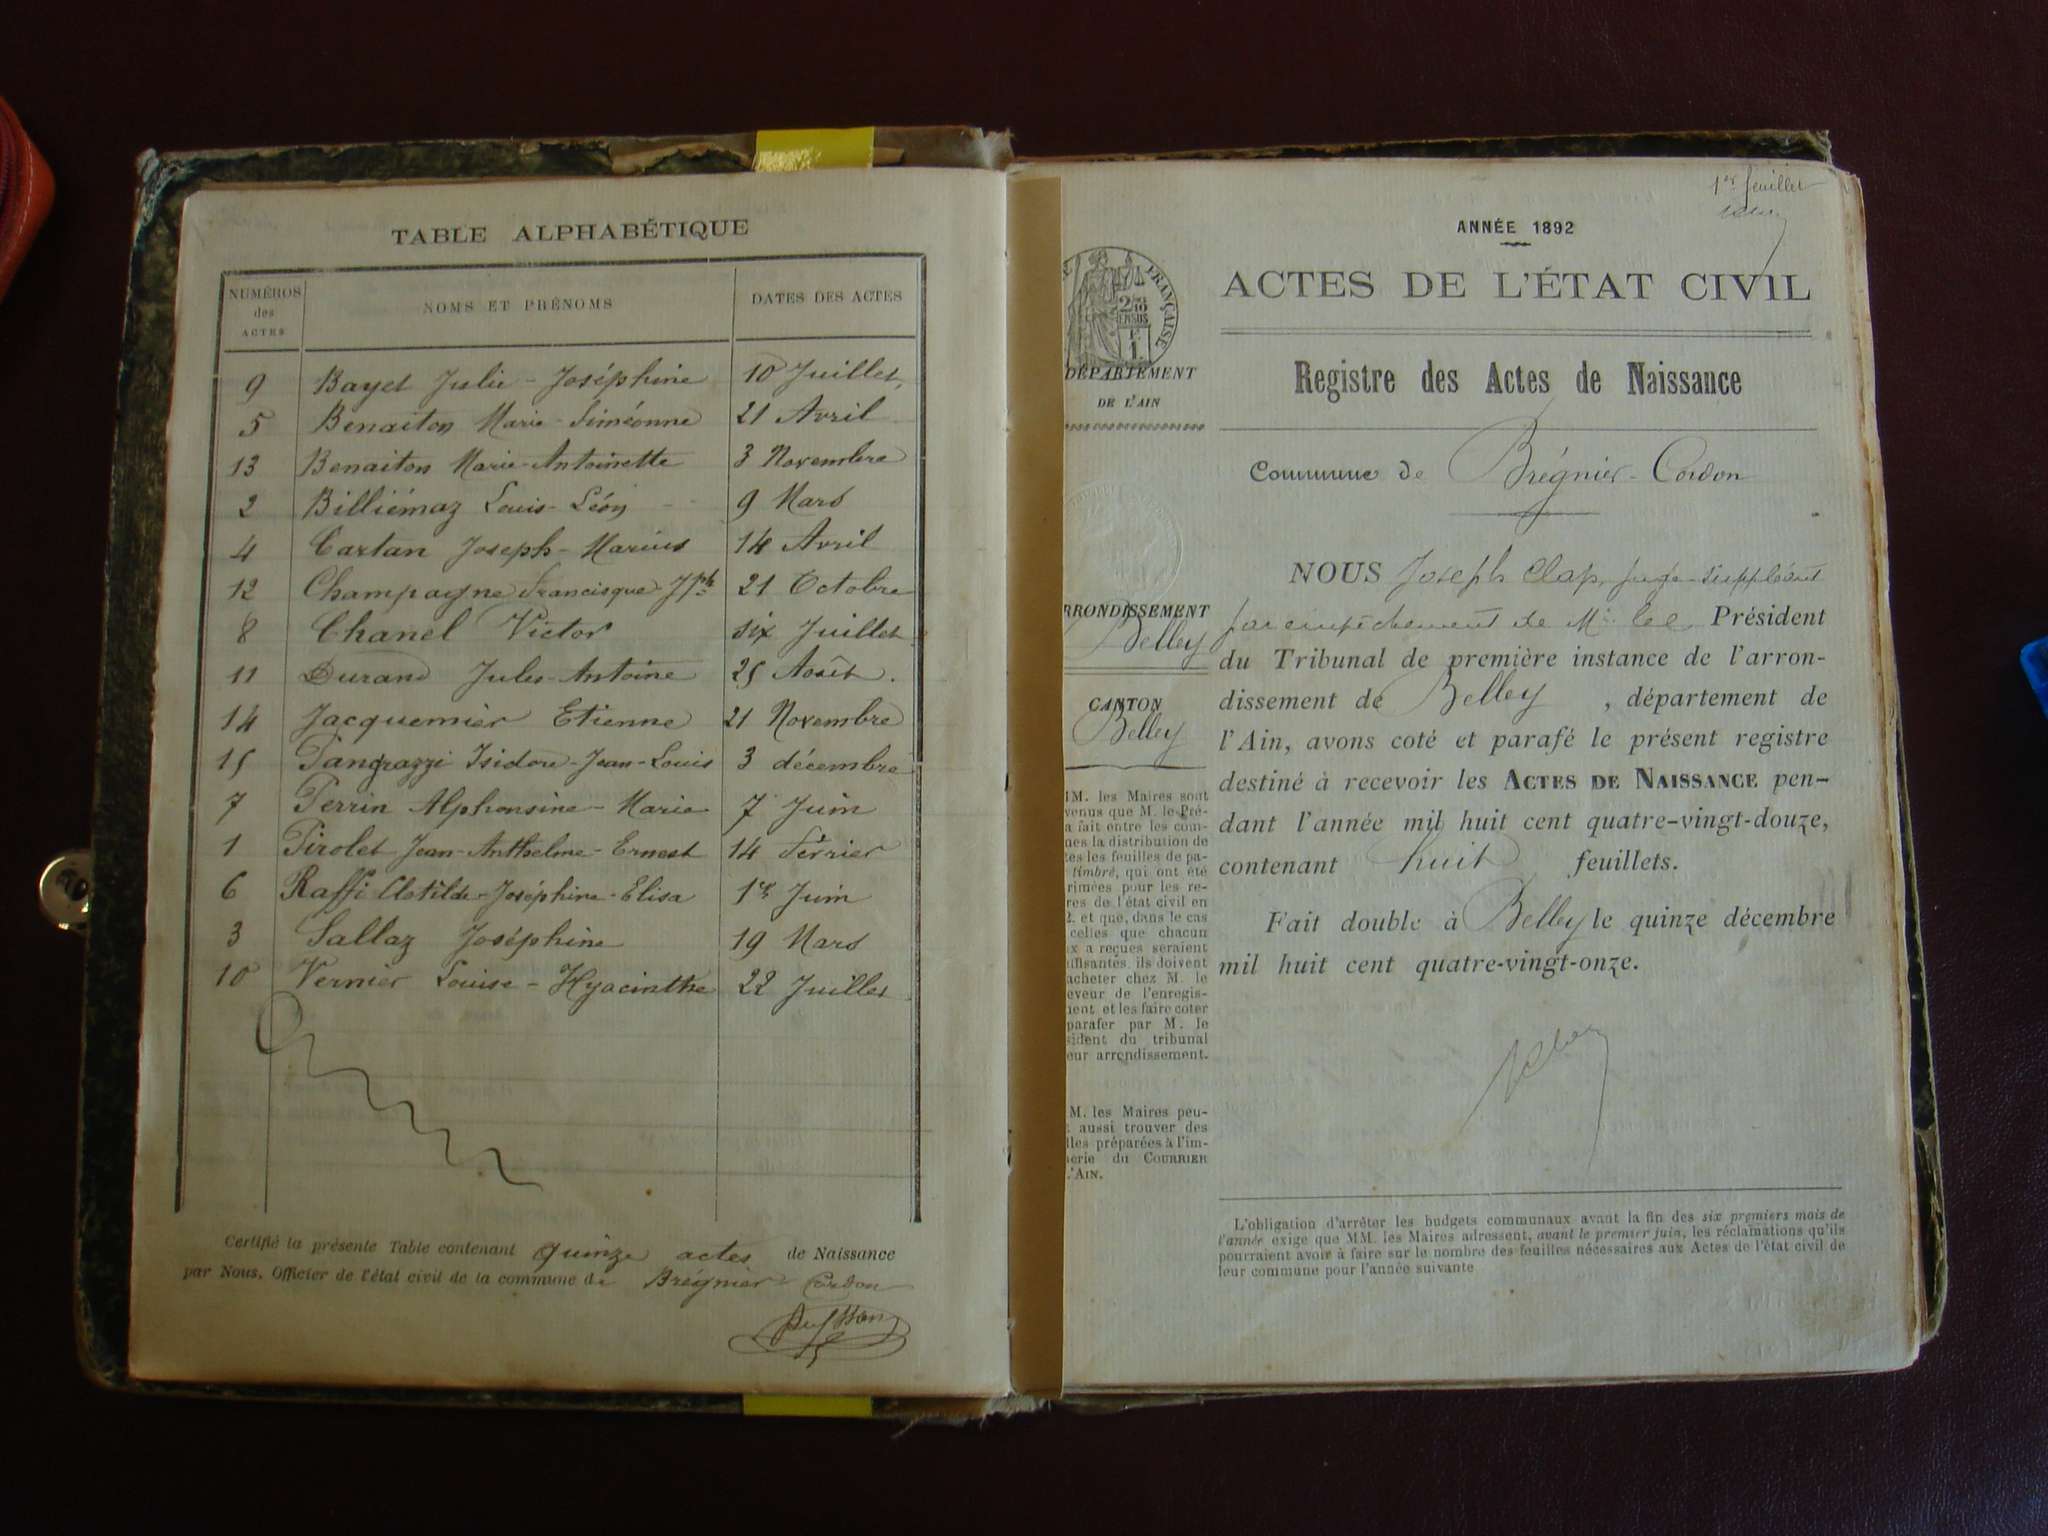 TABLE ALPHABÉTIQUE
NUMÉROS des ACTES NOMS ET PRÉNOMS DATES DES ACTES
9 Bayet Julie-Joséphine 10 Juillet
5 Benaiton Marie-Siméonne 21 Avril
13 Benaiton Marie-Antoinette 3 Novembre
2 Billiémaz Louis-Léon 9 Mars
4 Cartan Joseph-Marius 14 Avril
12 Champagne Francisque Jph 21 Octobre
8 Chanel Victor six Juillet
11 Durand Jules-Antoine 25 Août.
14 Jacquemier Etienne 21 Novembre
15 Pangrazzi Isidore-Jean-Louis 3 décembre
7 Perrin Alphonsine-Marie 7 Juin
1 Pirolet Jean-Anthelme-Ernest 14 Février
6 Raffi Clotilde-Joséphine-Elisa 1er Juin
3 Sallaz Joséphine 19 Mars
10 Vernier Louise-Hyacinthe 22 Juillet
Certifié la présente Table contenant quinze actes de Naissance
par Nous, Officier de l'état civil de la commune de Brégnier Cordon
1er feuillet
ANNÉE 1892
ACTES DE L'ÉTAT CIVIL
Registre des Actes de Naissance
Commune de Brégnier-Cordon
NOUS Joseph Clap, juge-suppléant
par empêchement de Mr le Président
du Tribunal de première instance de l'arron-
dissement de Belley, département de
l'Ain, avons coté et parafé le présent registre
destiné à recevoir les ACTES DE NAISSANCE pen-
dant l'année mil huit cent quatre-vingt-douze,
contenant huit feuillets.
Fait double à Belley le quinze décembre
mil huit cent quatre-vingt-onze.
L'obligation d'arrêter les budgets communaux avant la fin des six premiers mois de
l'année exige que MM. les Maires adressent, avant le premier juin, les réclamations qu'ils
pourraient avoir à faire sur le nombre des feuilles nécessaires aux Actes de l'état civil de
leur commune pour l'année suivante
FRANÇAISE
2/10 EN SUS
1 F.
DÉPARTEMENT
DE L'AIN
RRONDISSEMENT
Belley
CANTON
Belley
MM. les Maires sont
venus que M. le Pré-
a fait entre les com-
nes la distribution de
tes les feuilles de pa-
timbré, qui ont été
rimées pour les re-
res de l'état civil en
2. et que, dans le cas
celles que chacun
x a reçues seraient
uffisantes, ils doivent
acheter chez M. le
eveur de l'enregis-
ment et les faire coter
parafer par M. le
sident du tribunal
eur arrondissement.
M. les Maires peu-
t aussi trouver des
lles préparées à l'im-
erie du COURRIER
L'AIN.